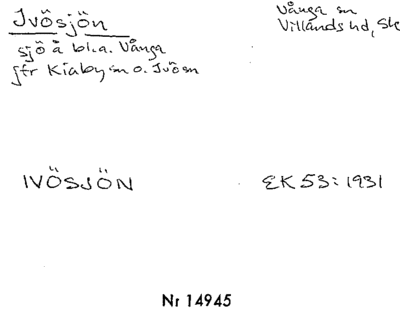 Ivösjön
Vånga sn
Villands hd, Sk
sjö å bl.a. Vånga
jfr Kiaby sn o. Ivö sn
IVÖSJÖN
EK 53: 1931
Nr 14945